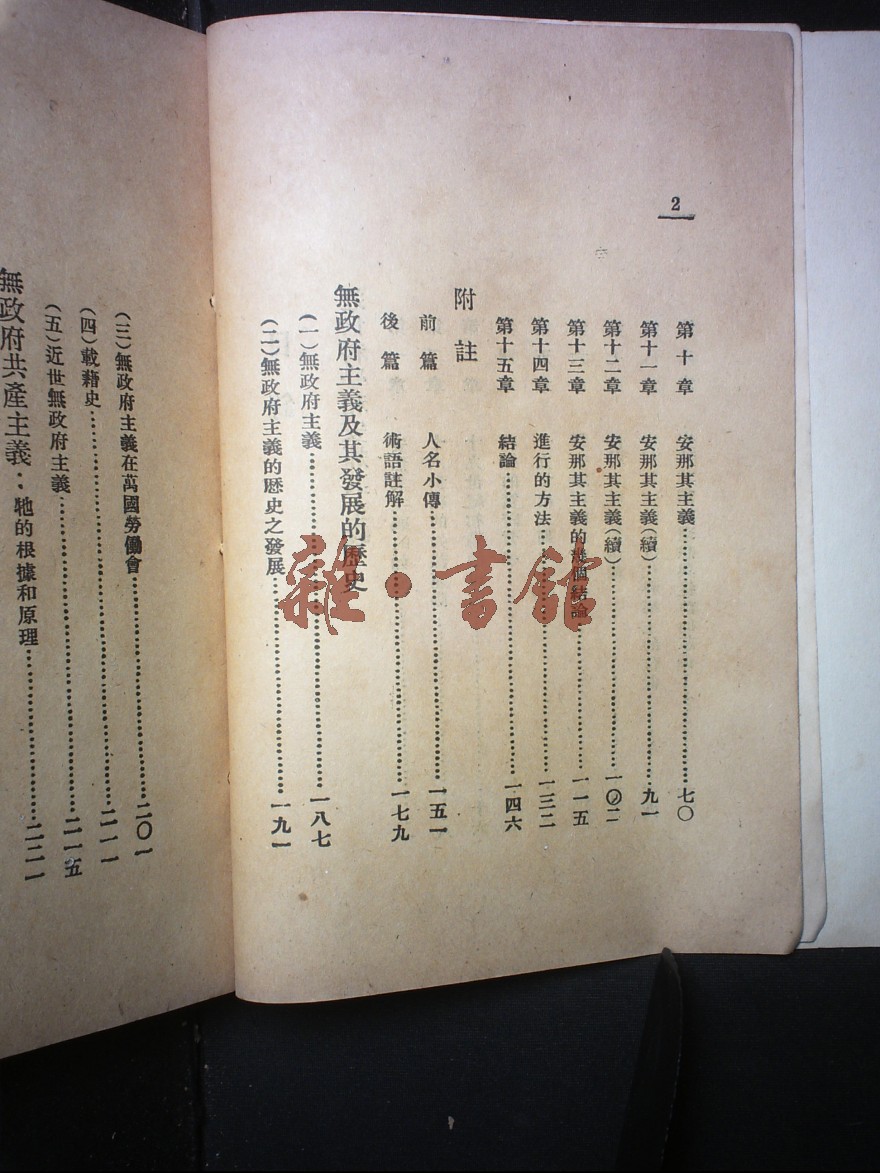 2
第十章 安那其主義……七〇
第十一章 安那其主義(續)……九一
第十二章 安那其主義(續)……一〇二
第十三章 安那其主義的幾個結論……一一五
第十四章 進行的方法……一三二
第十五章 結論……一四六
附註
前篇 人名小傳……一五一
後篇 術語註解……一七九
無政府主義及其發展的歷史
(一)無政府主義……一八七
(二)無政府主義的歷史之發展……一九一
(三)無政府主義在萬國勞働會……二〇一
(四)載藉史……二一一
(五)近世無政府主義……二一五
無政府共產主義:牠的根據和原理……二二一
雜·書館